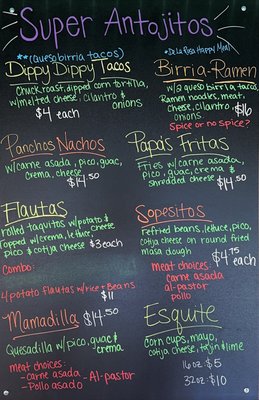 Super Antojitos
**(quesobirria tacos)
Dippy Dippy Tacos
Chuck roast, dipped corn tortilla,
w/melted cheese, cilantro &
onions
$4 each
*De La Rosa Happy Meal
Birria-Ramen
w/2 queso birria tacos,
Ramen noodles, meat,
cheese, cilantro,
onions
$16
Spice or no spice?
Panchos Nachos
w/carne asada, pico, guac,
crema, cheese
$14.50
Papas Fritas
Fries w/carne asada,
pico, guac, crema &
shredded cheese
$14.50
Flautas
rolled taquitos w/potato &
Topped w/crema, lettuce, cheese
pico & cotija cheese $3 each
Combo:
4 potato flautas w/rice & Beans
$11
Sopesitos
refried beans, lettuce, pico,
cotija cheese on round fried
masa dough
$4.75 each
Meat choices:
carne asada
al-pastor
pollo
Mamadilla $14.50
Quesadilla w/pico, guac &
crema
meat choices:
- carne asada - Al-pastor
- Pollo asado
Esquite
corn cups, mayo,
cotija cheese, tajin & lime
16oz: $5
32oz: $10